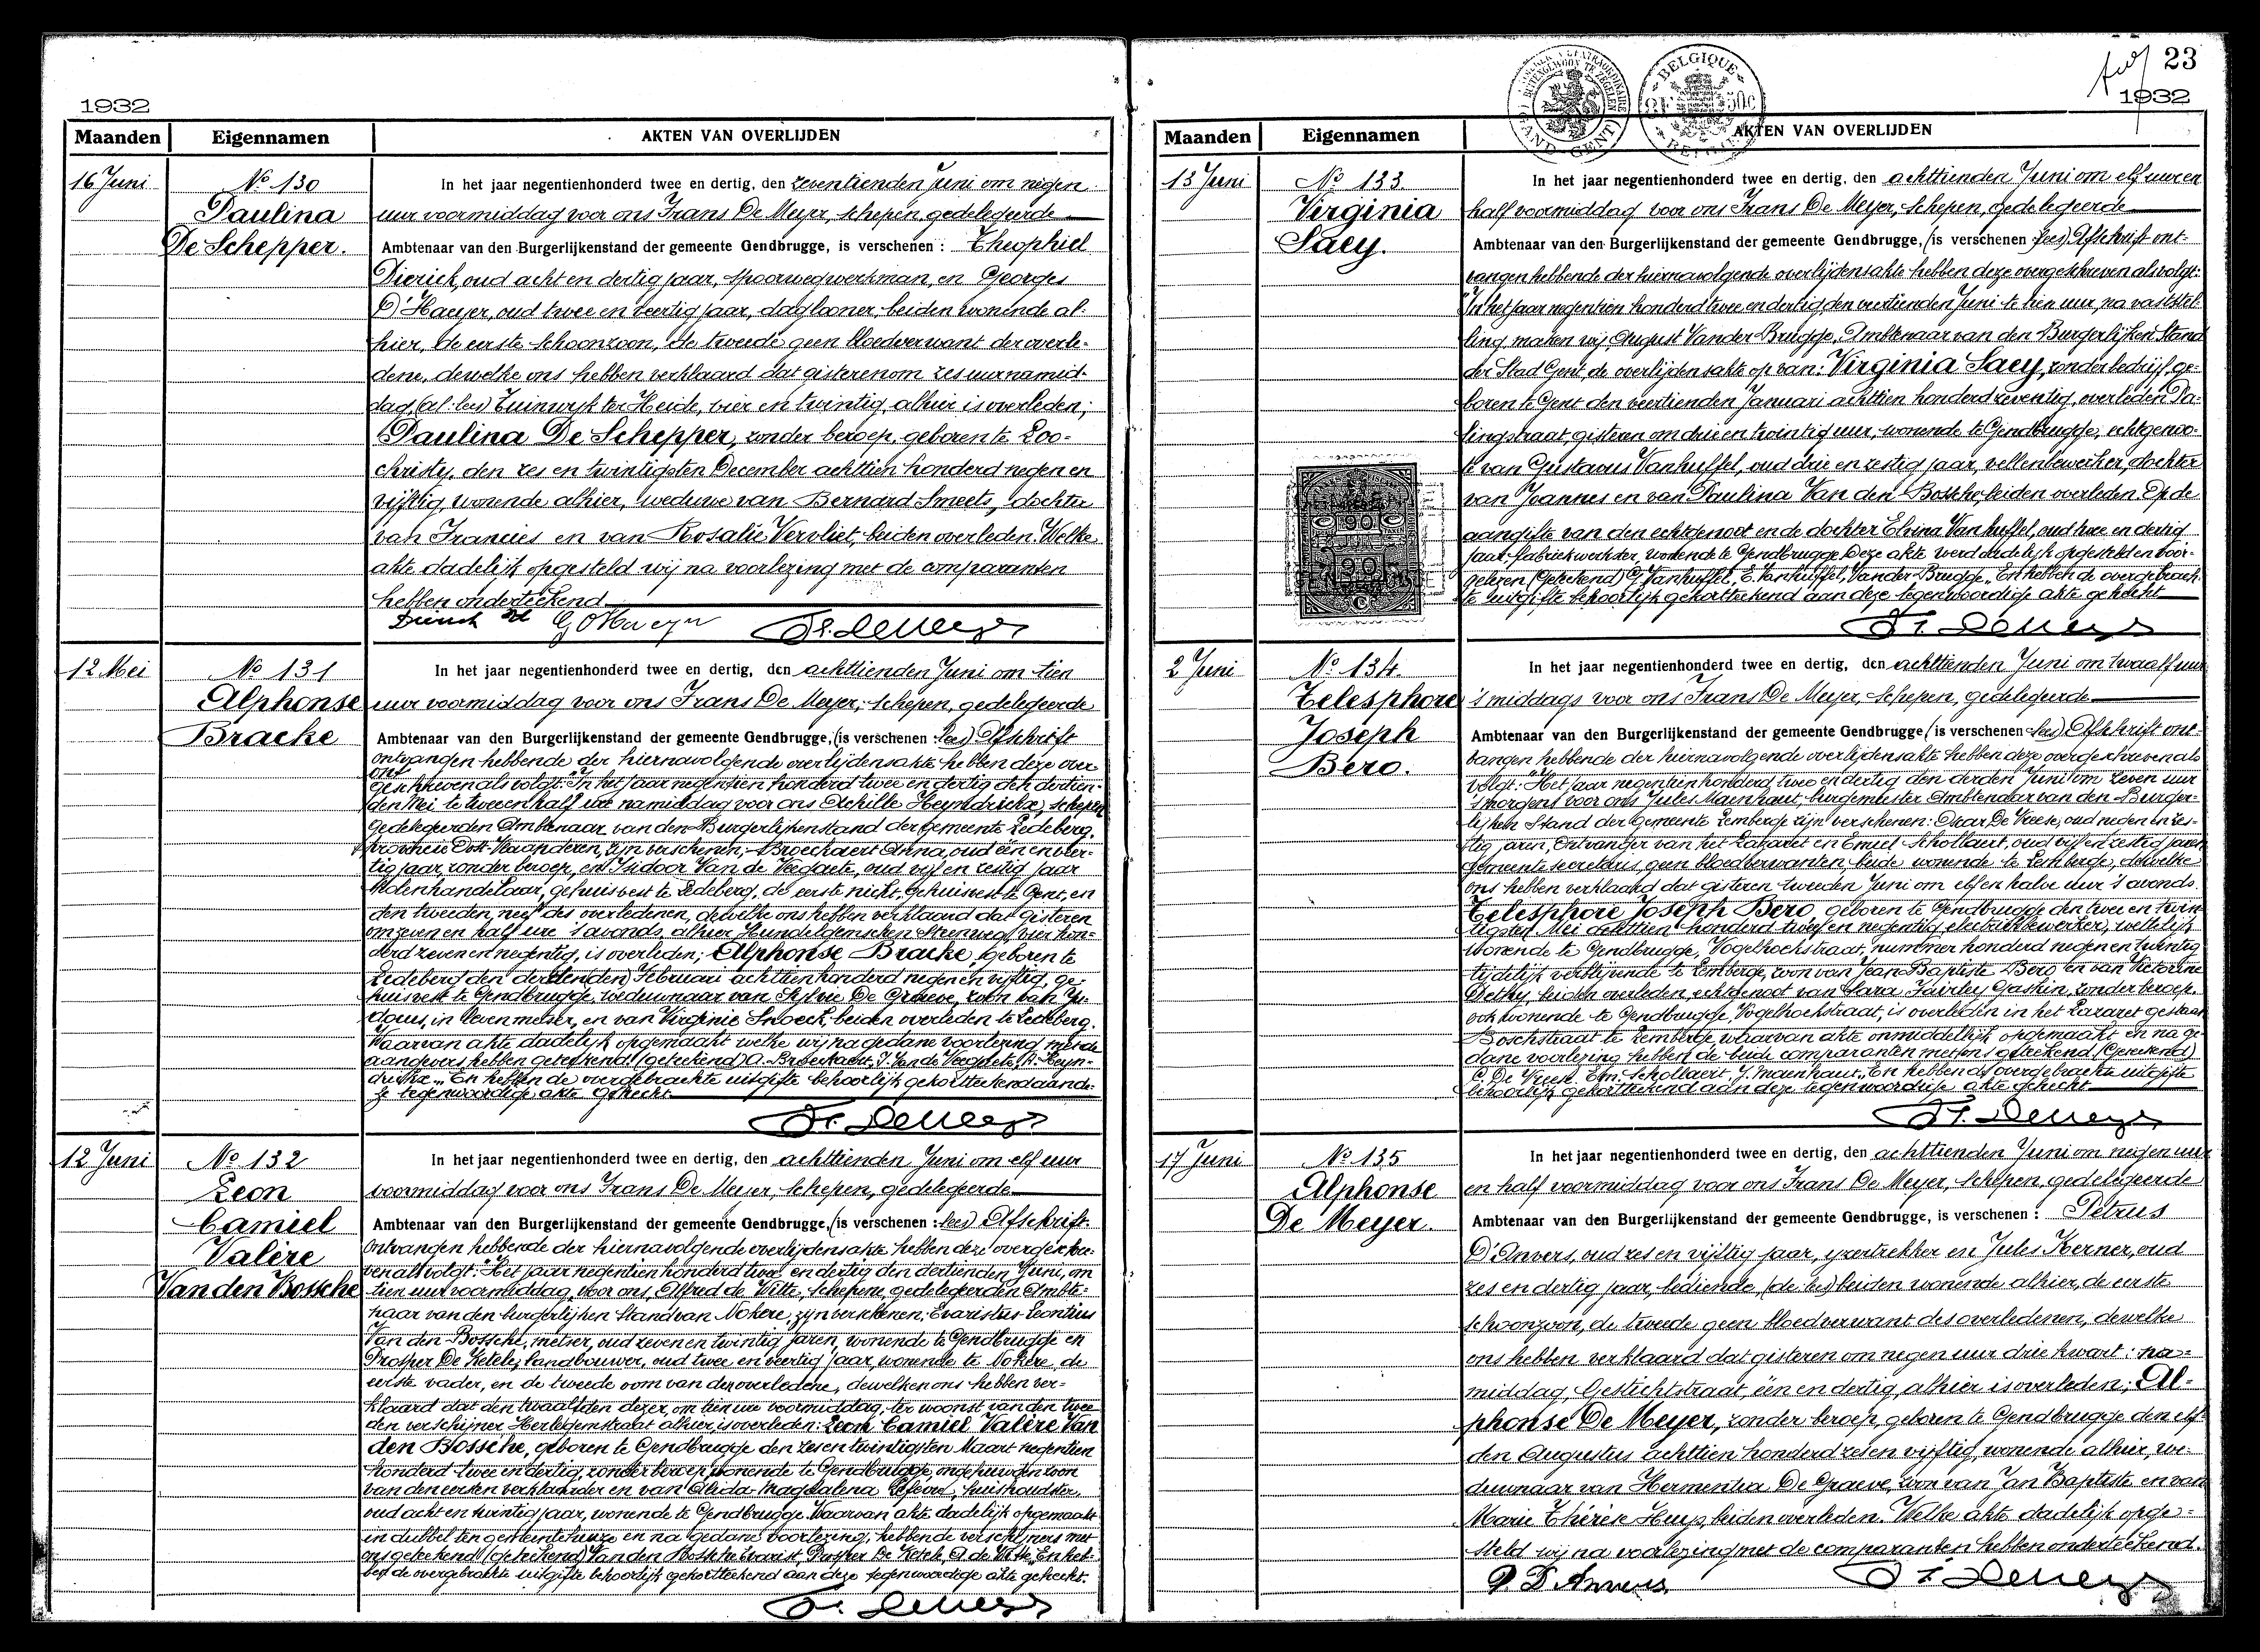 1932
Maanden Eigennamen AKTEN VAN OVERLIJDEN
16 Juni
No 130
Paulina
De Schepper.
In het jaar negentienhonderd twee en dertig, den zeventienden Juni om negen
uur voormiddag voor ons Frans De Meyer, schepen, gedelegeerde
Ambtenaar van den Burgerlijkenstand der gemeente Gendbrugge, is verschenen : Theophiel
Dierick, oud acht en dertig jaar, spoorwegwerkman, en Georges
D'Haeyer, oud twee en veertig jaar, daglooner, beiden wonende al-
hier, de eerste schoonzoon, de tweede geen bloedverwant der overle-
dene, dewelke ons hebben verklaard dat gisteren om zes uur namid-
dag, (al: lees) Tuinwijk ter Heide, vier en twintig, alhier is overleden;
Paulina De Schepper, zonder beroep, geboren te Loo-
christy, den zes en twintigsten December achttien honderd negen en
vijftig, wonende alhier, weduwe van Bernard Smeets, dochter
van Francies en van Rosalie Vervliet, beiden overleden. Welke
akte dadelijk opgesteld wij na voorlezing met de comparanten
hebben onderteekend
12 Mei
No 131
Alphonse
Bracke
In het jaar negentienhonderd twee en dertig, den achttienden Juni om tien
uur voormiddag voor ons Frans De Meyer, schepen, gedelegeerde
Ambtenaar van den Burgerlijkenstand der gemeente Gendbrugge, (is verschenen : lees) Afschrift
ontvangen hebbende der hiernavolgende overlijdensakte hebben deze over-
geschreven als volgt: "In het jaar negentien honderd twee en dertig den dertien-
den Mei te twee en half ure namiddag voor ons Achille Heyndrickx, schepen
Gedelegeerden Ambtenaar van den Burgerlijkenstand der Gemeente Ledeberg,
provincie Oost-Vlaanderen, zijn verschenen; Broeckaert Anna, oud één en veer-
tig jaar, zonder beroep, en Isidoor Van de Veegaete, oud vijf en zestig jaar
handelaar, gehuisvest te Ledeberg, de eerste nicht, gehuisvest te Gent, en
den tweeden, neef des overledenen, dewelke ons hebben verklaard dat gisteren
om zeven en half ure 's avonds, alhier, Hundelgemschen Steenweg, vier hon-
derd zeven en negentig, is overleden; Alphonse Bracke, geboren te
Ledeberg den Februari achttienhonderd negen en vijftig, ge-
huisvest te Gendbrugge, weduwnaar van Sylvie De Graeve, zoon van
in leven metser, en van Virginie Snoeck, beiden overleden te Ledeberg.
Waarvan akte dadelijk opgemaakt welke wij na gedane voorlezing met de
aangevers hebben geteekend. (geteekend) A. Broeckaert, I. Van de Veegaete, A. Heyn-
drickx." En hebben de overgebrachte uitgifte behoorlijk gekortteekend aan de-
ze tegenwoordige akte gehecht.
12 Juni
No 132
Leon
Camiel
Valère
Van den Bossche
In het jaar negentienhonderd twee en dertig, den achttienden Juni om elf uur
voormiddag voor ons Frans De Meyer, schepen, gedelegeerde
Ambtenaar van den Burgerlijkenstand der gemeente Gendbrugge, (is verschenen : lees) Afschrift
ontvangen hebbende der hiernavolgende overlijdensakte hebben deze overgeschre-
ven als volgt: "Het jaar negentien honderd twee en dertig den dertienden Juni, om
tien uur voormiddag, voor ons, Alfred de Witte, schepene, gedelegeerden Ambte-
naar van den burgerlijken Stand van Nokere, zijn verschenen; Evaristus Leontius
Van den Bossche, metser, oud zeven en twintig jaren, wonende te Gendbrugge en
Prosper De Ketele, landbouwer, oud twee en veertig jaar, wonende te Nokere, de
eerste vader, en de tweede oom van den overledene, dewelken ons hebben ver-
klaard dat den twaalfden dezer, om tien ure voormiddag, ter woonst van den twee-
den verschijner alhier is overleden: Leon Camiel Valère Van
den Bossche, geboren te Gendbrugge den zes en twintigsten Maart negentien
honderd twee en dertig, zonder beroep, wonende te Gendbrugge, ongehuwd, zoon
van den eersten verklaarder en van Alida Magdalena huishoudster
oud acht en twintig jaar, wonende te Gendbrugge. Waarvan akte dadelijk opgemaakt
in dubbel ten gemeentehuize en na gedane voorlezing, hebben de verschijners met
ons geteekend (geteekend) Van den Bossche Evarist, Prosper De Ketele, A. de Witte." En heb-
ben de overgebrachte uitgifte behoorlijk gekortteekend aan deze tegenwoordige akte gehecht.
23
1932
Maanden Eigennamen AKTEN VAN OVERLIJDEN
BELGIQUE
13 Juni
No 133
Virginia
Saey.
In het jaar negentienhonderd twee en dertig, den achttienden Juni om elf uur en
half voormiddag voor ons Frans De Meyer, schepen, gedelegeerde
Ambtenaar van den Burgerlijkenstand der gemeente Gendbrugge, (is verschenen : lees) Afschrift ont-
vangen hebbende der hiernavolgende overlijdensakte hebben deze overgeschreven als volgt:
"In het jaar negentien honderd twee en dertig, den veertienden Juni te tien uur, na vaststel-
ling, maken wij, August Vander Brugge, Ambtenaar van den Burgerlijken Stand
der Stad Gent, de overlijdensakte op van: Virginia Saey, zonder bedrijf, ge-
boren te Gent den veertienden Januari achttien honderd zeventig, overleden Pa-
lingstraat, gisteren om drie en twintig uur, wonende te Gendbrugge, echtgenoo-
te van Gustavus Vanhuffel, oud drie en zestig jaar, vellenbewerker, dochter
van Joannes en van Paulina Van den Bossche, beiden overleden. Op de
aangifte van den echtgenoot en de dochter Elvina Vanhuffel, oud twee en dertig
jaar, fabriekwerkster, wonende te Gendbrugge. Deze akte werd dadelijk opgesteld en voor-
gelezen (Geteekend) G. Vanhuffel, E. Vanhuffel, Vander Brugge." En hebben de overgebrach-
te uitgifte behoorlijk gekortteekend aan deze tegenwoordige akte gehecht
2 Juni
No 134.
Telesphore
Joseph
Bero.
In het jaar negentienhonderd twee en dertig, den achttienden Juni om twaalf uur
's middags voor ons Frans De Meyer, schepen, gedelegeerde
Ambtenaar van den Burgerlijkenstand der gemeente Gendbrugge, (is verschenen : lees) Afschrift ont-
vangen hebbende der hiernavolgende overlijdensakte hebben deze overgeschreven als
volgt: "Het jaar negentienhonderd twee en dertig den derden Juni om zeven uur
's morgens voor ons Jules Maenhaut, burgemeester Ambtenaar van den Burger-
lijken Stand der Gemeente Lemberge zijn verschenen: Oscar De Vreese, oud negen en zes-
tig jaren, Ontvanger van het Lazaret en Emiel Schollaert, oud vijf en zestig jaren
gemeentesecretaris, geen bloedverwanten, beide wonende te Lemberge, dewelke
ons hebben verklaard dat gisteren tweeden Juni om elf en halve uur 's avonds
Telesphore Joseph Bero, geboren te Gendbrugge den twee en twin-
tigsten Mei achttien honderd twee en negentig, electriekbewerker, wettelijk
wonende te Gendbrugge, Vogelhoekstraat, nummer honderd negen en twintig
tijdelijk verblijvende te Lemberge, zoon van Jean-Baptiste Bero en van Victorine
beiden overleden, echtgenoot van Sara Fairley Gaskin, zonder beroep
ook wonende te Gendbrugge, Vogelhoekstraat, is overleden in het Lazaret gestaan
Boschstraat te Lemberge, waarvan akte onmiddellijk opgemaakt en na ge-
dane voorlezing hebben de beide comparanten met ons geteekend. (Geteekend)
O. De Vreese, Em. Schollaert, J. Maenhaut." En hebben de overgebrachte uitgifte
behoorlijk gekortteekend aan deze tegenwoordige akte gehecht
17 Juni
No 135
Alphonse
De Meyer.
In het jaar negentienhonderd twee en dertig, den achttienden Juni om negen uur
en half voormiddag voor ons Frans De Meyer, schepen, gedelegeerde
Ambtenaar van den Burgerlijkenstand der gemeente Gendbrugge, is verschenen : Petrus
D'Anvers, oud zes en vijftig jaar, ijzertrekker en Jules Kerner, oud
zes en dertig jaar, bediende, (de: lees) beiden wonende alhier, de eerste
schoonzoon, de tweede geen bloedverwant des overledenen, dewelke
ons hebben verklaard dat gisteren om negen uur drie kwart : na-
middag, Gestichtstraat, één en dertig, alhier is overleden; Al-
phonse De Meyer, zonder beroep, geboren te Gendbrugge den elf-
den Augustus achttien honderd zes en vijftig, wonende alhier, we-
duwnaar van Hermentia De Graeve, zoon van Jan Baptiste en van
Marie Thérèse Huys, beiden overleden. Welke akte dadelijk opge-
steld wij na voorlezing met de comparanten hebben onderteekend.
P. D'Anvers